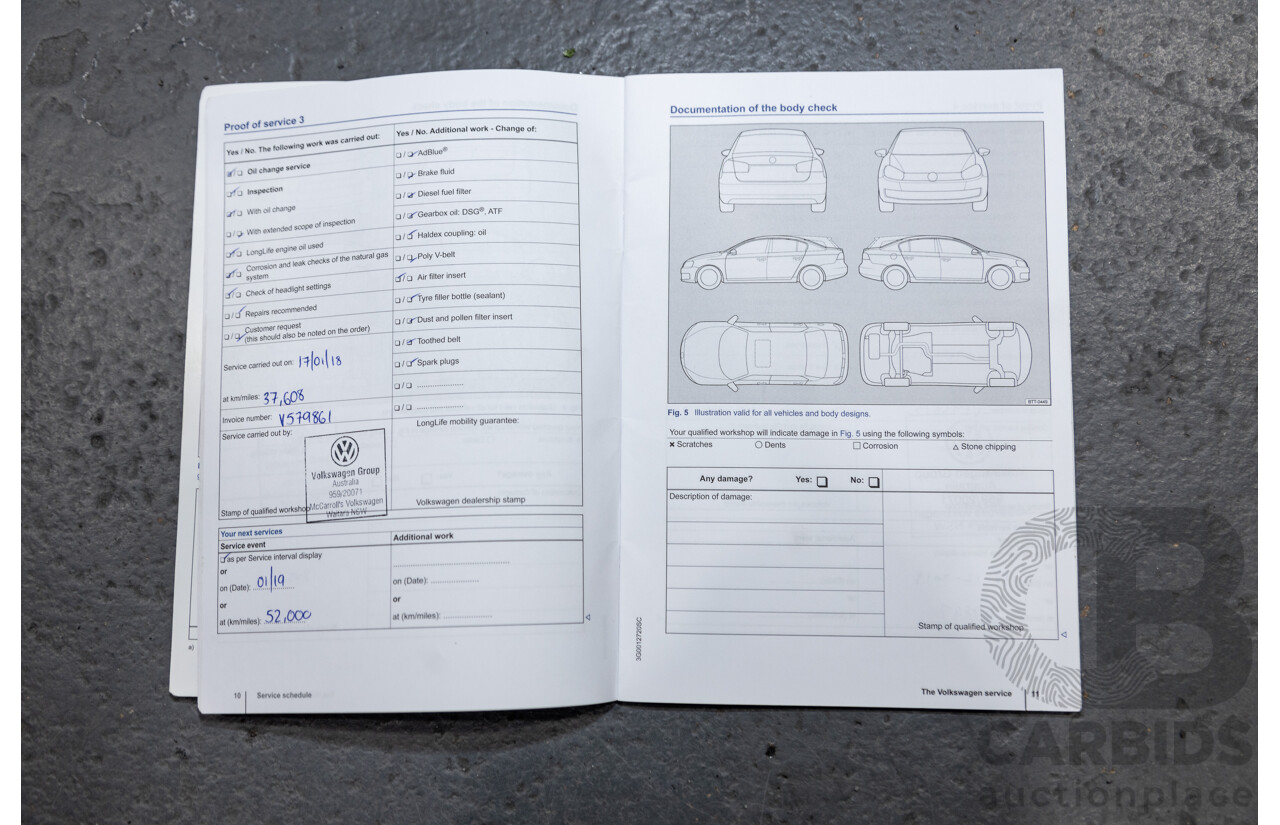 Proof of service 3
Yes / No. The following work was carried out:
Oil change service
Inspection
With oil change
With extended scope of inspection
LongLife engine oil used
Corrosion and leak checks of the natural gas
system
Check of headlight settings
Repairs recommended
Customer request
(this should also be noted on the order)
Service carried out on: 17/01/18
at km/miles: 37,608
Invoice number: V579861
Service carried out by:
Volkswagen Group
Australia
959/20071
McCarroll's Volkswagen
Waitara NSW
Stamp of qualified workshop
Yes / No. Additional work - Change of:
AdBlue®
Brake fluid
Diesel fuel filter
Gearbox oil: DSG®, ATF
Haldex coupling: oil
Poly V-belt
Air filter insert
Tyre filler bottle (sealant)
Dust and pollen filter insert
Toothed belt
Spark plugs
LongLife mobility guarantee:
Volkswagen dealership stamp
Your next services
Service event
as per Service interval display
or
on (Date): 01/19
or
at (km/miles): 52,000
Additional work
on (Date):
or
at (km/miles):
a)
10 Service schedule
Documentation of the body check
BTT-0446
Fig. 5 Illustration valid for all vehicles and body designs.
Your qualified workshop will indicate damage in Fig. 5 using the following symbols:
× Scratches ○ Dents □ Corrosion △ Stone chipping
Any damage? Yes: No:
Description of damage:
Stamp of qualified workshop
3G0012720SC
The Volkswagen service 11
CB
CARBIDS
auctionplace